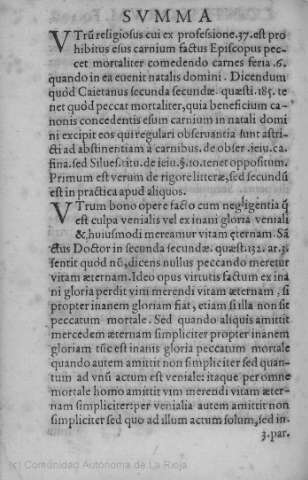 SVMMA
VTrū religiosus cui ex professione .37. est pro
hibitus esus carnium factus Episcopus pec
cet mortaliter comedendo carnes feria .6.
quando in ea euenit natalis domini. Dicendum
quòd Caietanus secunda secundæ. quæsti. 185. te
net quòd peccat mortaliter, quia beneficium ca-
nonis concedentis esum carnium in natali domi
ni excipit eos qui regulari obseruantia sunt astri-
cti ad abstinentiam à carnibus. de obser. ieiu. ca.
fina. sed Silues. titu. de ieiu. §. 10. tenet oppositum.
Primum est verum de rigore litteræ, sed secundū
est in practica apud aliquos.
VTrum bono opere facto cum negligentia q̄
est culpa venialis vel ex inani gloria veniali
&, huiusmodi mereamur vitam æternam. Sā
ctus Doctor in secunda secundæ. quæst. 132. ar. 3.
sentit quòd nō, dicens nullus peccando meretur
vitam æternam. Ideo opus virtutis factum ex ina
ni gloria perdit vim merendi vitam æternam, si
propter inanem gloriam fiat, etiam si illa non sit
peccatum mortale. Sed quando aliquis amittit
mercedem æternam simpliciter propter inanem
gloriam tūc est inanis gloria peccatum mortale
quando autem amittit non simpliciter sed quan-
tum ad vnū actum est veniale: itaque per omne
mortale homo amittit vim merendi vitam æter-
nam simpliciter: per venialia autem amittit non
simpliciter sed quo ad illum actum solum, sed in.
3. par.
(c) Comunidad Autónoma de La Rioja